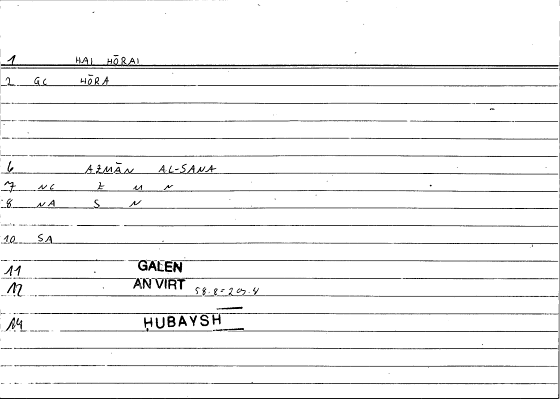 1 HAI HŌRAI
2 GC HŌRA
6 AZMĀN AL-SANA
7 NC Z M N
8 NA S N
10 SA
11 GALEN
12 AN VIRT 58.8=209.4
14 ḤUBAYSH